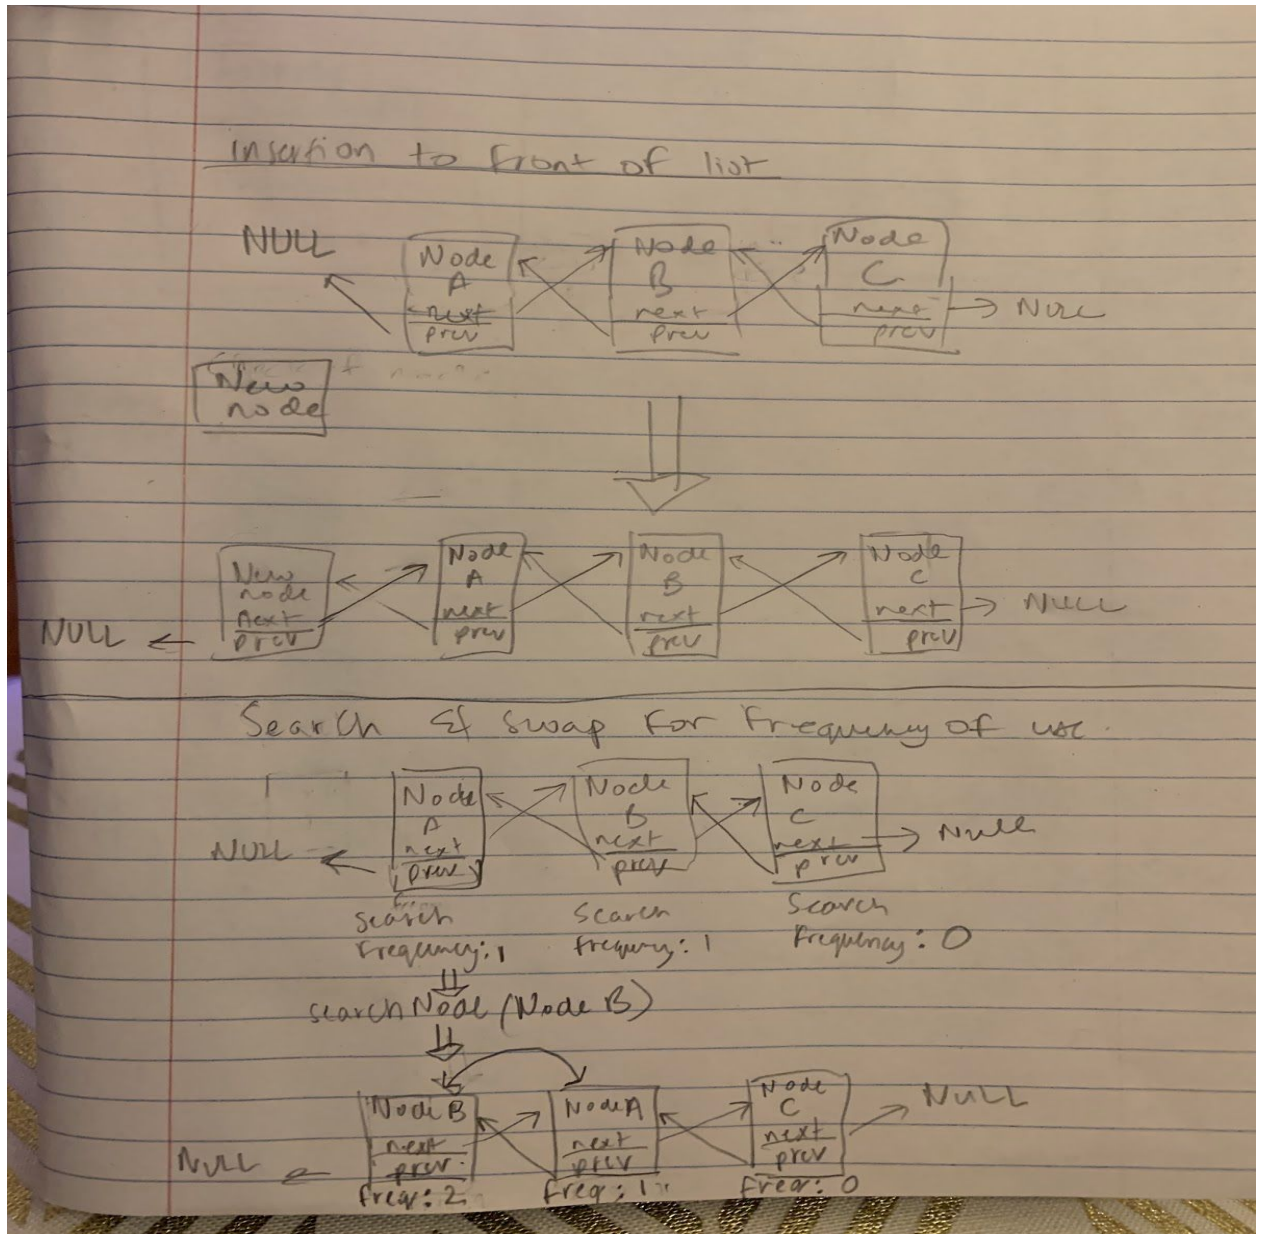 Insertion to front of list
NULL
Node A next prev
Node B next prev
Node C next prev
NULL
New node
New node next prev
Node A next prev
Node B next prev
Node C next prev
NULL
NULL
Search & swap for frequency of use.
Node A next prev
Node B next prev
Node C next prev
NULL
NULL
Search Frequency: 1
Search frequency: 1
Search Frequency: 0
searchNode (Node B)
Node B next prev
Node A next prev
Node C next prev
NULL
NULL
freq: 2
freq: 1
freq: 0